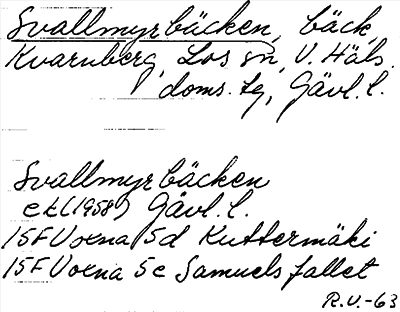 Svallmyrbäcken, bäck,
Kvarnberg, Los sn, V. Häls.
doms. tg, Gävl. l.
Svallmyrbäcken
ek (1958) Gävl. l.
15F Voxna 5d Kuttermäki
15F Voxna 5e Samuelsfallet
R.V.-63